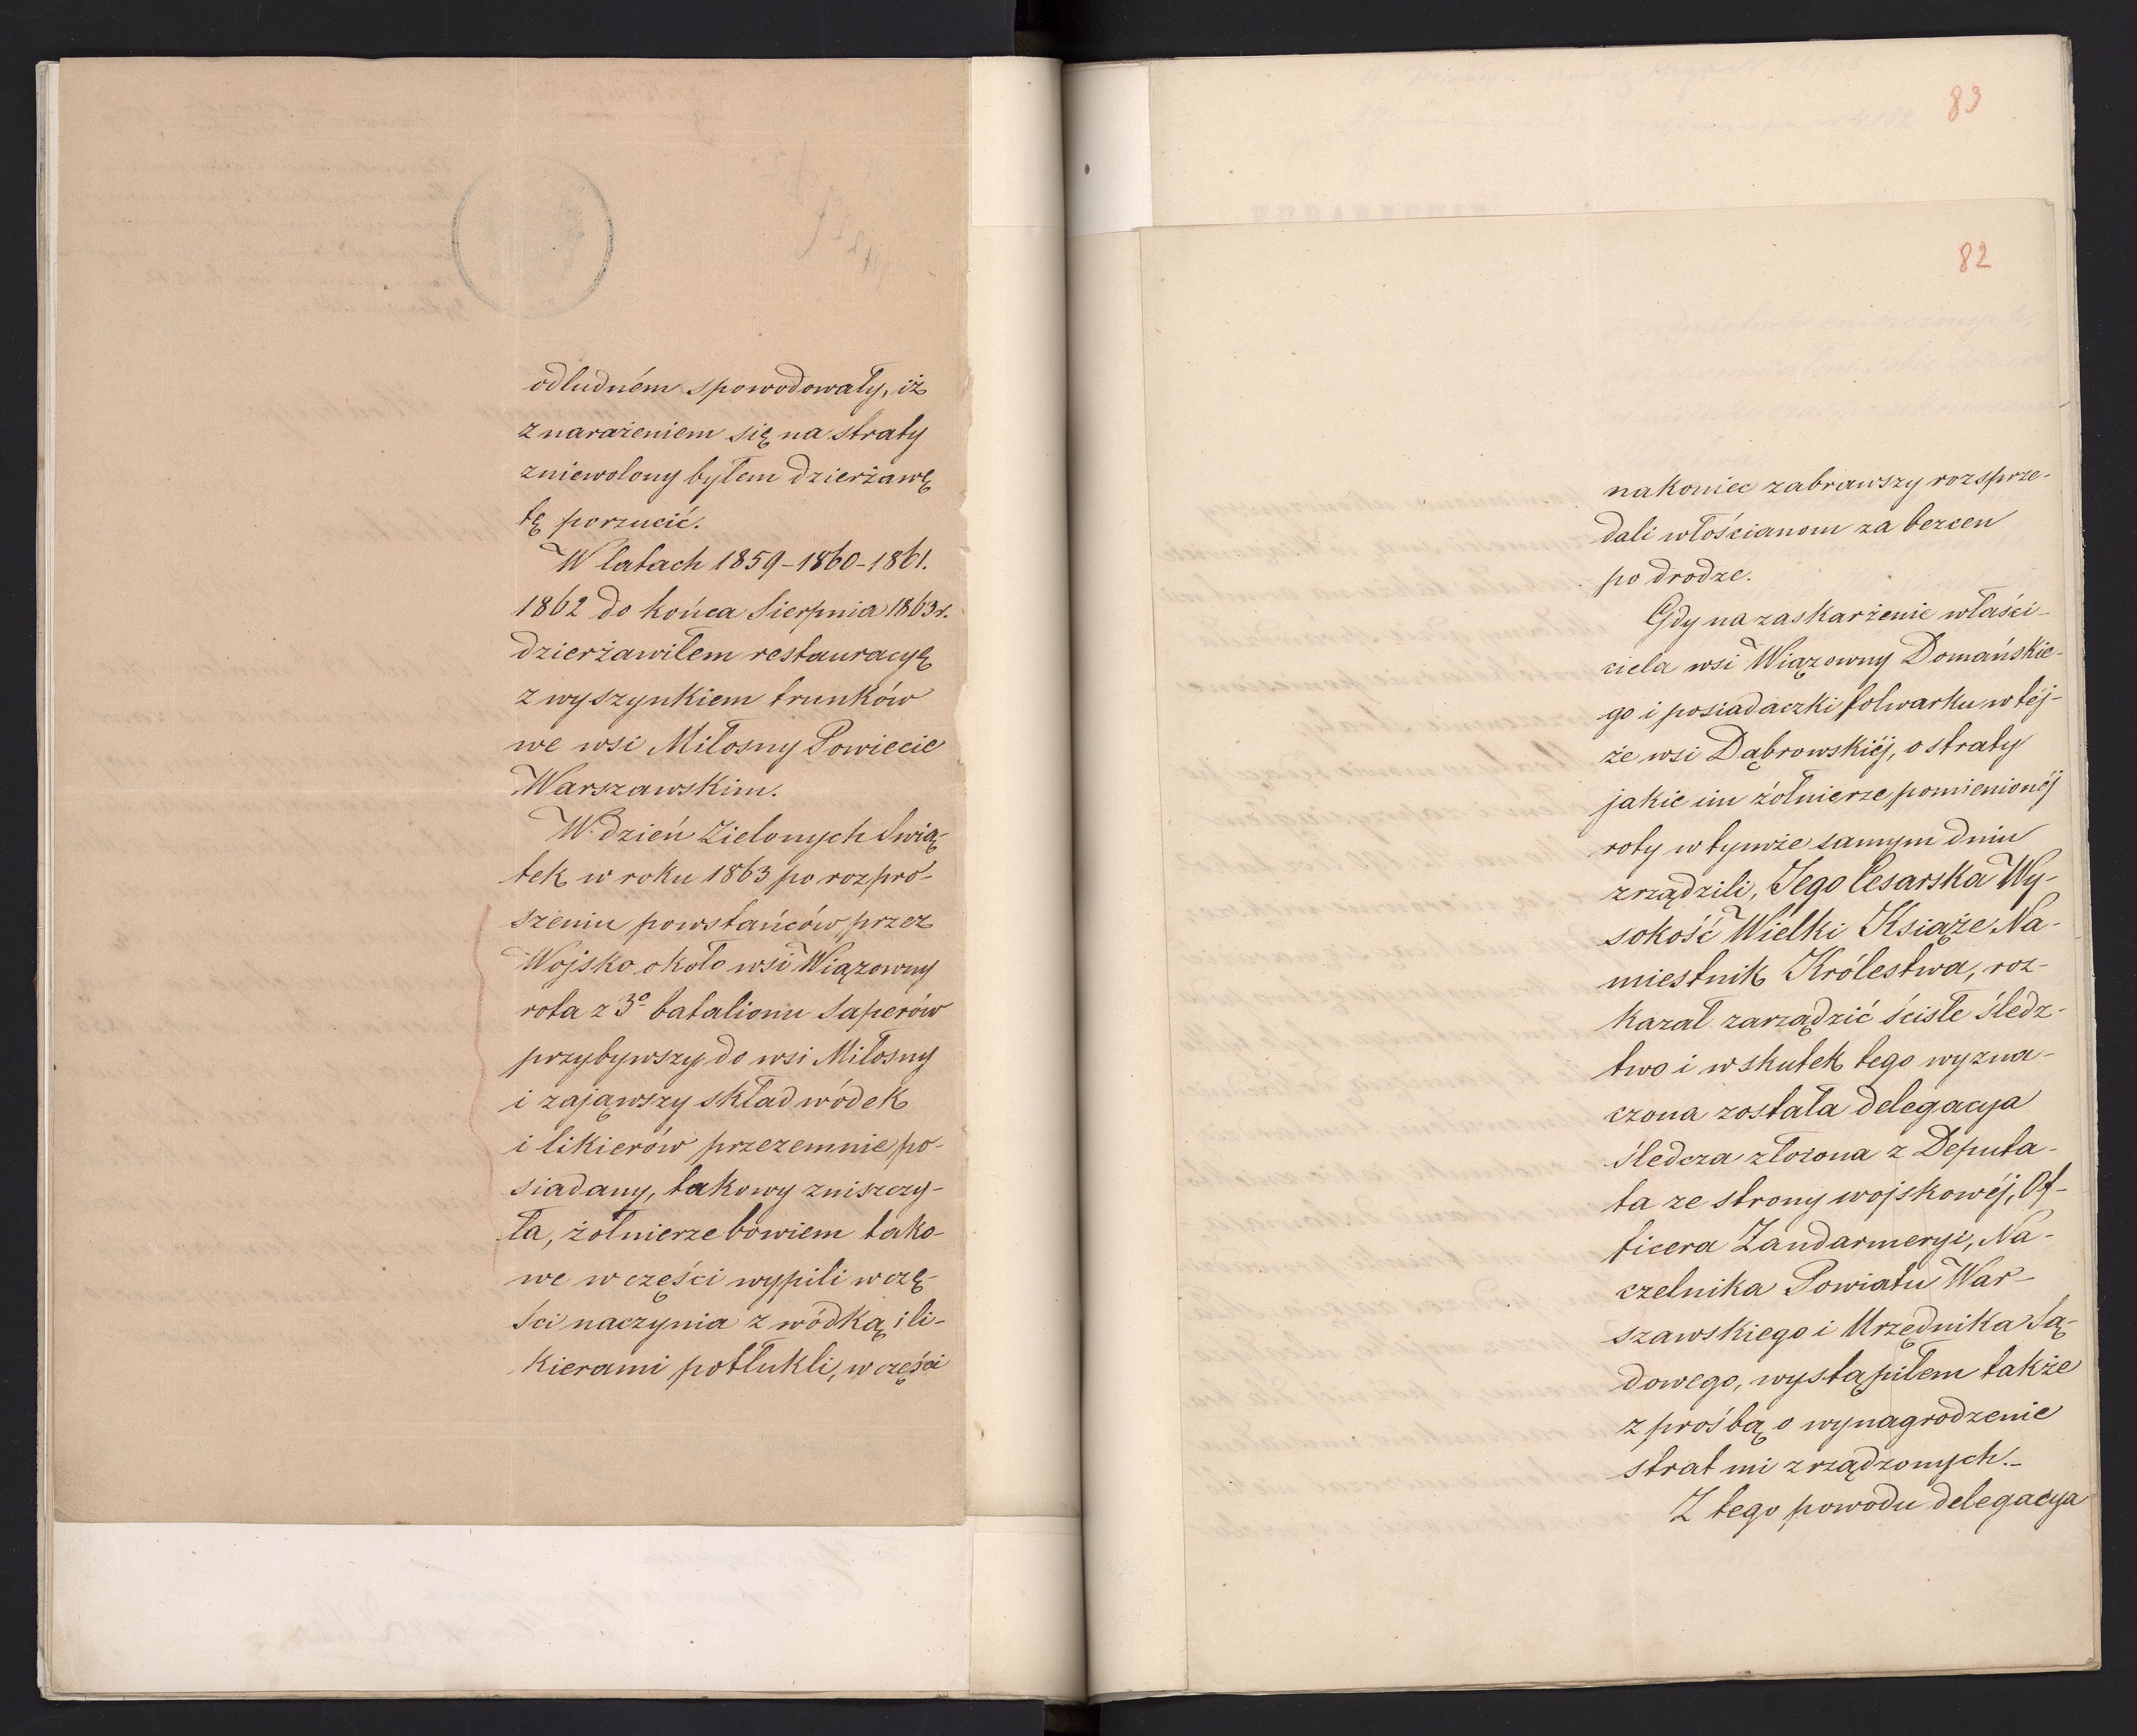 odludném spowodowały, iż
z narażeniem się na straty
zniewolony byłem dzierżawę
tę porzucić.
W latach 1859-1860-1861.
1862 do końca Sierpnia 1863 r.
dzierżawiłem restauracyę
z wyszynkiem trunków
we wsi Miłosny Powiecie
Warszawskim.
W dzień Zielonych Swią-
tek w roku 1863 po rozpro-
szeniu powstańców przez
Wojsko około wsi Wiązowny
rota z 3º batalionu Saperów
przybywszy do wsi Miłosny
i zająwszy skład wódek
i likierów przezemnie po-
siadany, takowy zniszczy-
ła, żołnierze bowiem tako-
we w części wypili w czę-
ści naczynia z wódką i li-
kierami potłukli, w części
83
82
nakoniec zabrawszy rozsprze-
dali włościanom za bezcen
po drodze.
Gdy na zaskarżenie właści-
ciela wsi Wiązowny Domańskie-
go i posiadaczki folwarku w téj-
że wsi Dąbrowskiéj, o straty
jakie im żołnierze pomienionéj
roty w tymże samym dniu
zrządzili, Jego Cesarska Wy-
sokość Wielki Książe Na-
miestnik Królestwa, roz-
kazał zarządzić ścisłe śledz-
two i wskutek tego wyzna-
czona została delegacya
śledcza złożona z Deputa-
ta ze strony wojskowéj, Of-
ficera Żandarmeryi, Na-
czelnika Powiatu War-
szawskiego i Urzędnika Są-
dowego, wystąpiłem także
z prośbą o wynagrodzenie
strat mi zrządzonych.-
Z tego powodu delegacya